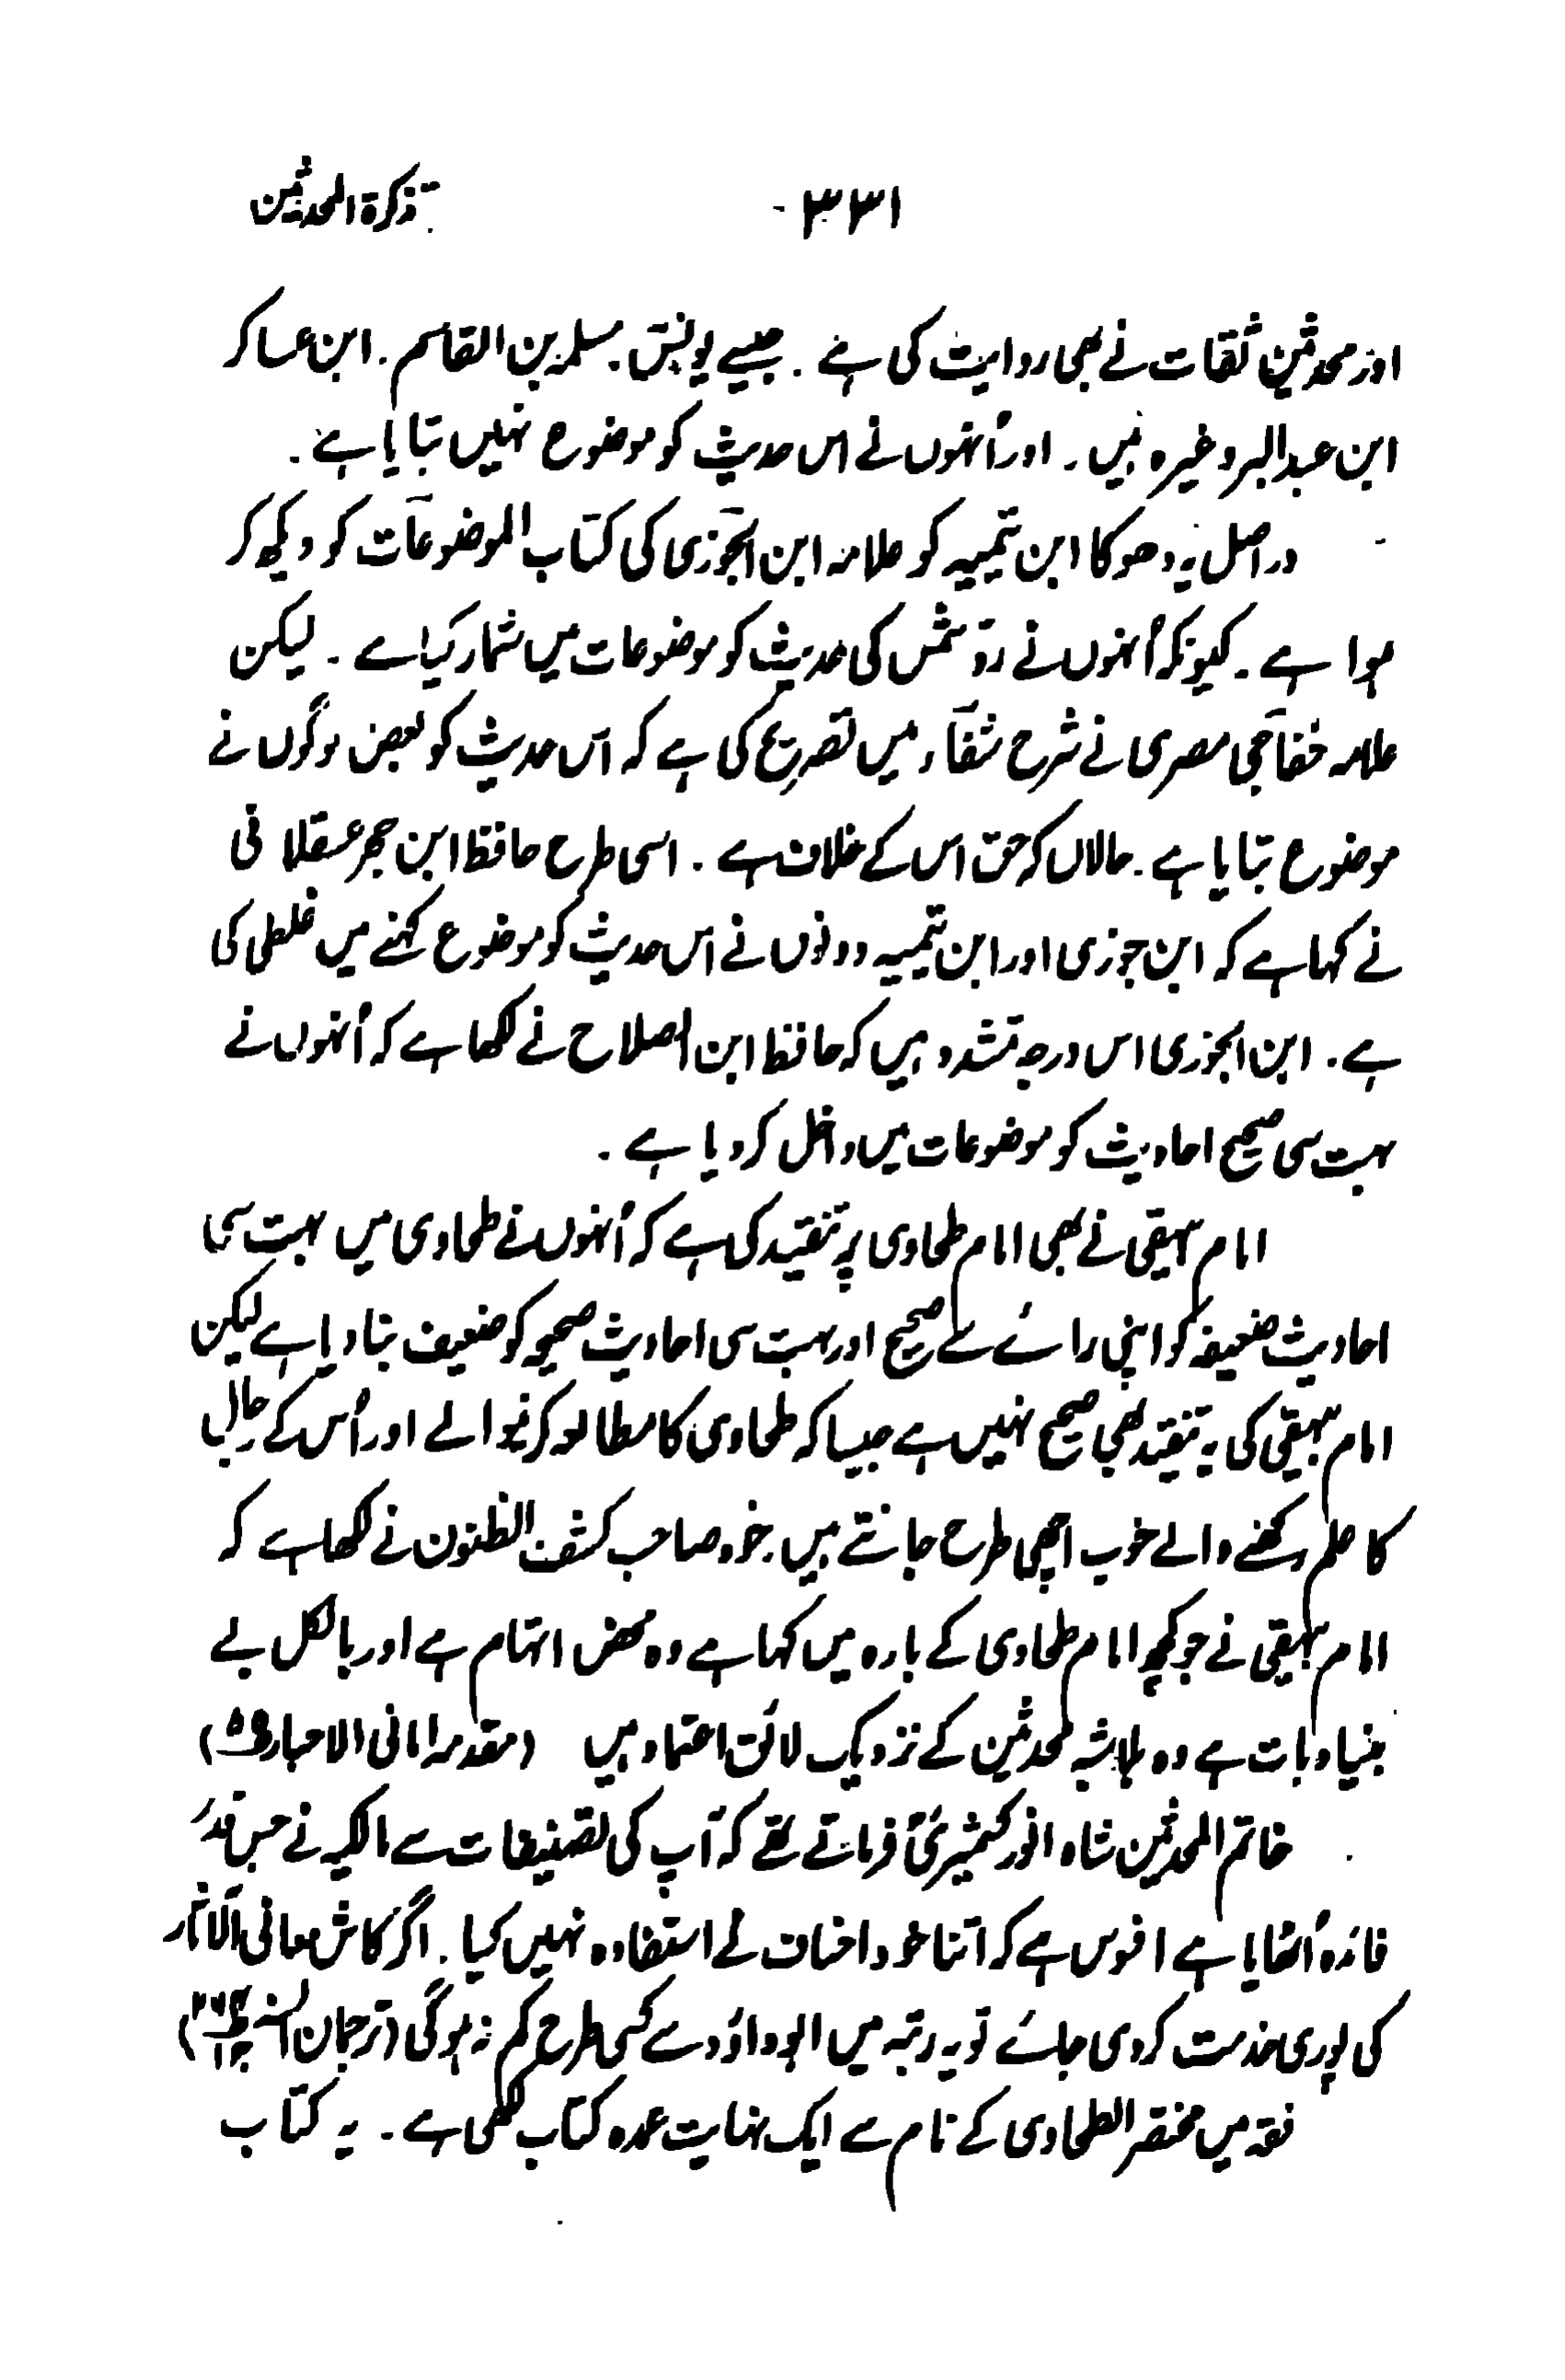 تذکرۃ المحدثین ۳۳۱
اور محدثین ثقات نے بھی روایت کی ہے ۔ جیسے یونس، مسلمہ بن القاسم ۔ ابن عساکر
ابن عبدالبر وغیرہ ہیں ۔ اور اُنہوں نے اس حدیث کو موضوع نہیں بتایا ہے ۔
دراصل یہ دھوکا ابن تیمیہ کو علامہ ابن الجوزی کی کتاب الموضوعات کو دیکھ کر
ہوا ہے ۔ کیونکہ اُنہوں نے ردّ شمس کی حدیث کو موضوعات میں شمار کیا ہے ۔ لیکن
علامہ خفاجی مصری نے شرح شفاء میں تصریح کی ہے کہ اس حدیث کو بعض لوگوں نے
موضوع بتایا ہے ۔ حالاں کہ حق اس کے خلاف ہے ۔ اسی طرح حافظ ابن حجر عسقلانی
نے کہا ہے کہ ابن جوزی اور ابن تیمیہ دونوں نے اس حدیث کو موضوع کہنے میں غلطی کی
ہے ۔ ابن الجوزی اس درجہ متشدد ہیں کہ حافظ ابن الصلاح نے لکھا ہے کہ اُنہوں نے
بہت سی صحیح احادیث کو موضوعات میں داخل کر دیا ہے ۔
امام بیہقی نے بھی امام طحاوی پر تنقید کی ہے کہ اُنہوں نے طحاوی میں بہت سی
احادیث ضعیفہ کو اپنی رائے سے صحیح اور بہت سی احادیث صحیحہ کو ضعیف بنا دیا ہے لیکن
امام بیہقی کی یہ تنقید بھی صحیح نہیں ہے جیسا کہ طحاوی کا مطالعہ کرنیوالے اور اُس کے رجال
کا علم رکھنے والے خوب اچھی طرح جانتے ہیں ۔ خود صاحب کشف الظنون نے لکھا ہے کہ
امام بیہقی نے جو کچھ امام طحاوی کے بارہ میں کہا ہے وہ محض اتہام ہے اور بالکل بے
بنیاد بات ہے وہ بلاشبہ محدثین کے نزدیک لائق اعتماد ہیں (مقدمہ امانی الاحبار)
خاتم المحدثین شاہ انور کشمیریؒ فرماتے تھے کہ آپ کی تصنیفات سے مالکیہ نے جس قدر
فائدہ اُٹھایا ہے افسوس ہے کہ اتنا خود احناف نے استفادہ نہیں کیا ۔ اگر کاش معانی الآثار
کی پوری خدمت کردی جائے تو یہ رتبہ میں ابوداؤد سے کسی طرح کم نہ ہوگی (ترجمان السنہ)
فقہ میں مختصر الطحاوی کے نام سے ایک نہایت عمدہ کتاب لکھی ہے ۔ یہ کتاب